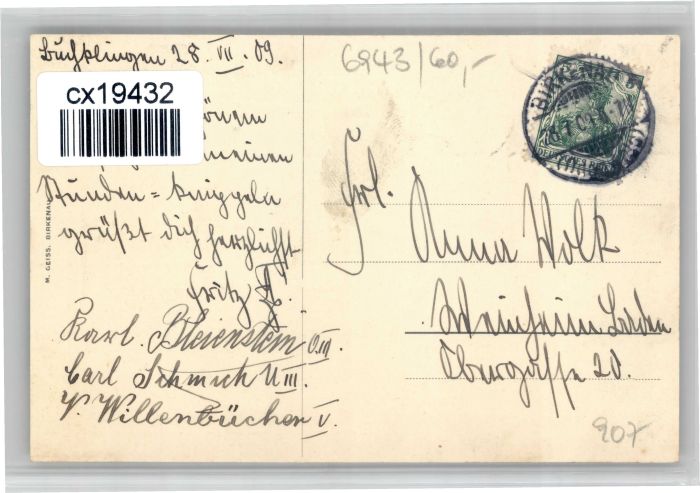 Buchklingen 28. VII. 09.
cx19432
meinen
Stunden = kneippeln
grüßt dich herzlichst
Fritz
Karl Bleienstein OIII.
Carl Schmich UIII.
V. Willenbücher V.
M. GEISS, BIRKENAU
6943/60,-
BIRKENAU
Frl.
Anna Wolk
Weinheim Baden
Obergasse 20.
907